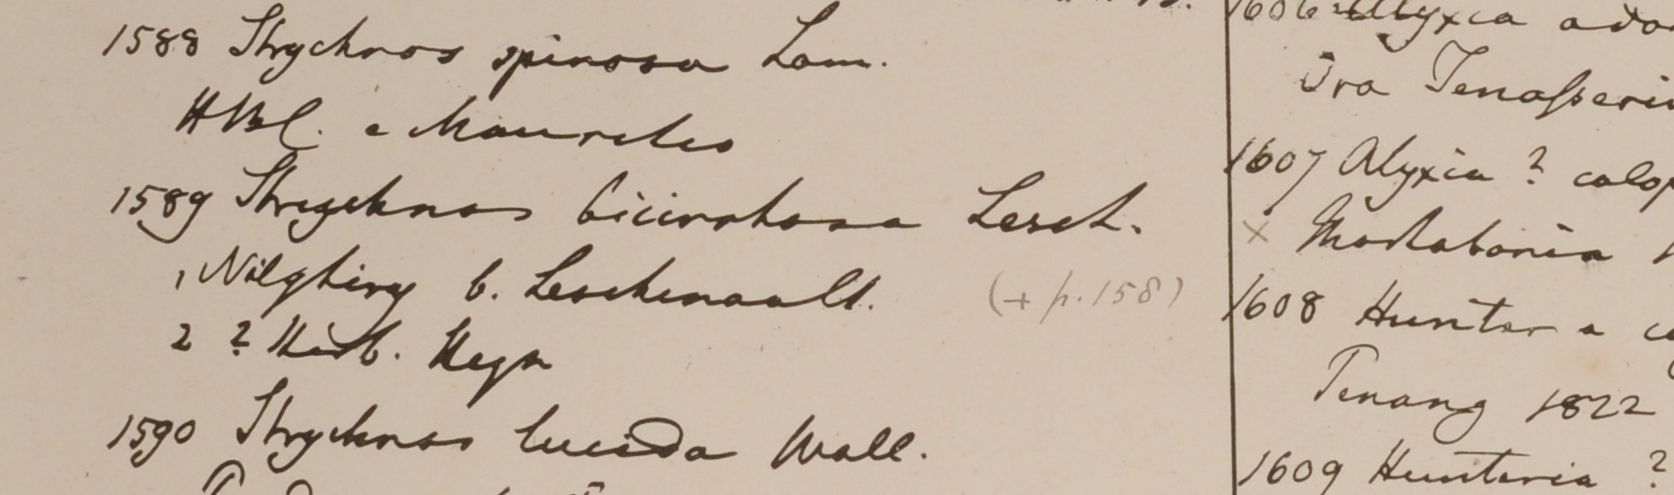 1588 Strychnos spinosa Lam.
HBC. e Mauritio
1589 Strychnos bicirrhosa Lesch.
1 Nilghiry b. Leschenault. (+ p. 158)
2 ? Herb. Heyn
1590 Strychnos lucida Wall.
1606 Alyxia odo
Ora Tenasseri
1607 Alyxia ? calop
× Martabania
1608 Hunteria c
Penang 1822
1609 Hunteria ?